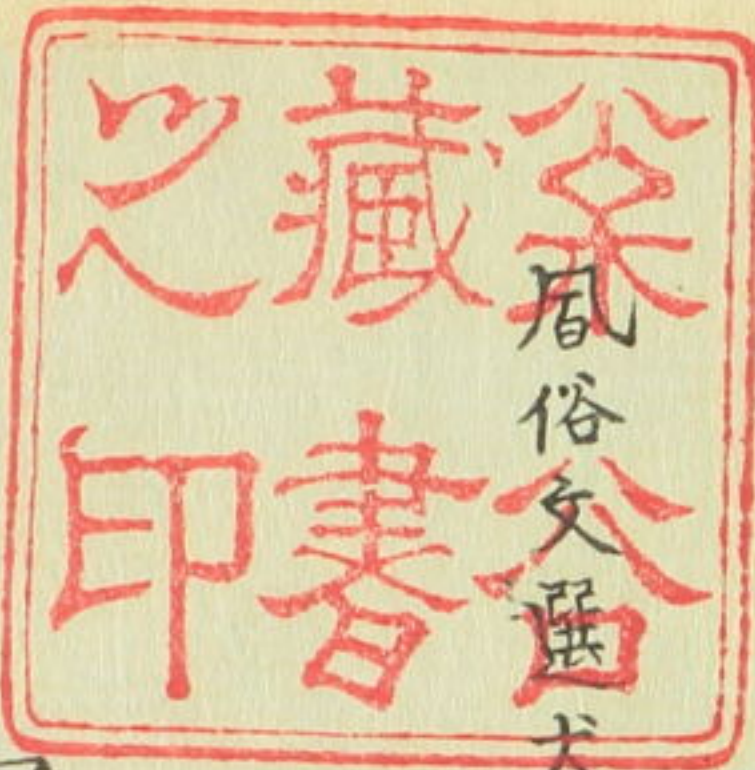 谷
藏書
之印
風俗文選犬